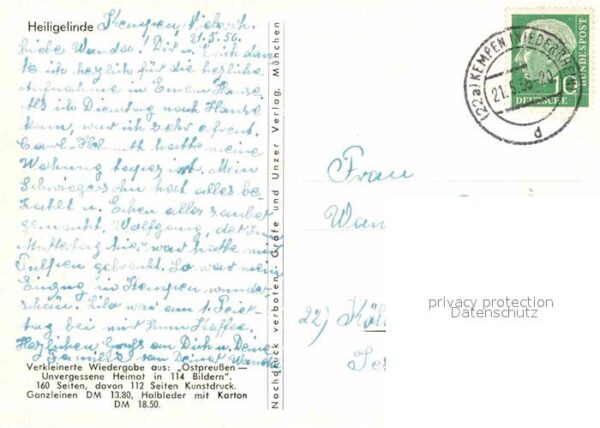 Heiligelinde
Kempen, Niederrh.
21.5.56.
Liebe Wanda! Dir u. Erich danke
ich herzlich für die herzliche
Aufnahme in Eurem Hause.
Als ich Dienstag nach Hause
kam, war ich sehr erfreut.
Carl-Helmuth hatte meine
Wohnung tapeziert. Mein
Schwiegersohn hat alles be-
zahlt u. alles sauber
gemacht. Wolfgang, der zum
Muttertag hier war hatte mir
Tulpen gebracht. So war mein
Einzug in Kempen wunder-
schön. war am 1. Feier-
tag bei mir zum Kaffee.
Herzlichen Gruß an Dich u. Deine
Familie von Deiner Wanda
Verkleinerte Wiedergabe aus: „Ostpreußen —
Unvergessene Heimat in 114 Bildern".
160 Seiten, davon 112 Seiten Kunstdruck.
Ganzleinen DM 13.80, Halbleder mit Karton
DM 18.50.
Nachdruck verboten. Gräfe und Unzer Verlag, München
(22a) KEMPEN (NIEDERRHEIN)
21.5.56-20
d
10
DEUTSCHE
BUNDESPOST
Frau
Wan
22)
privacy protection
Datenschutz